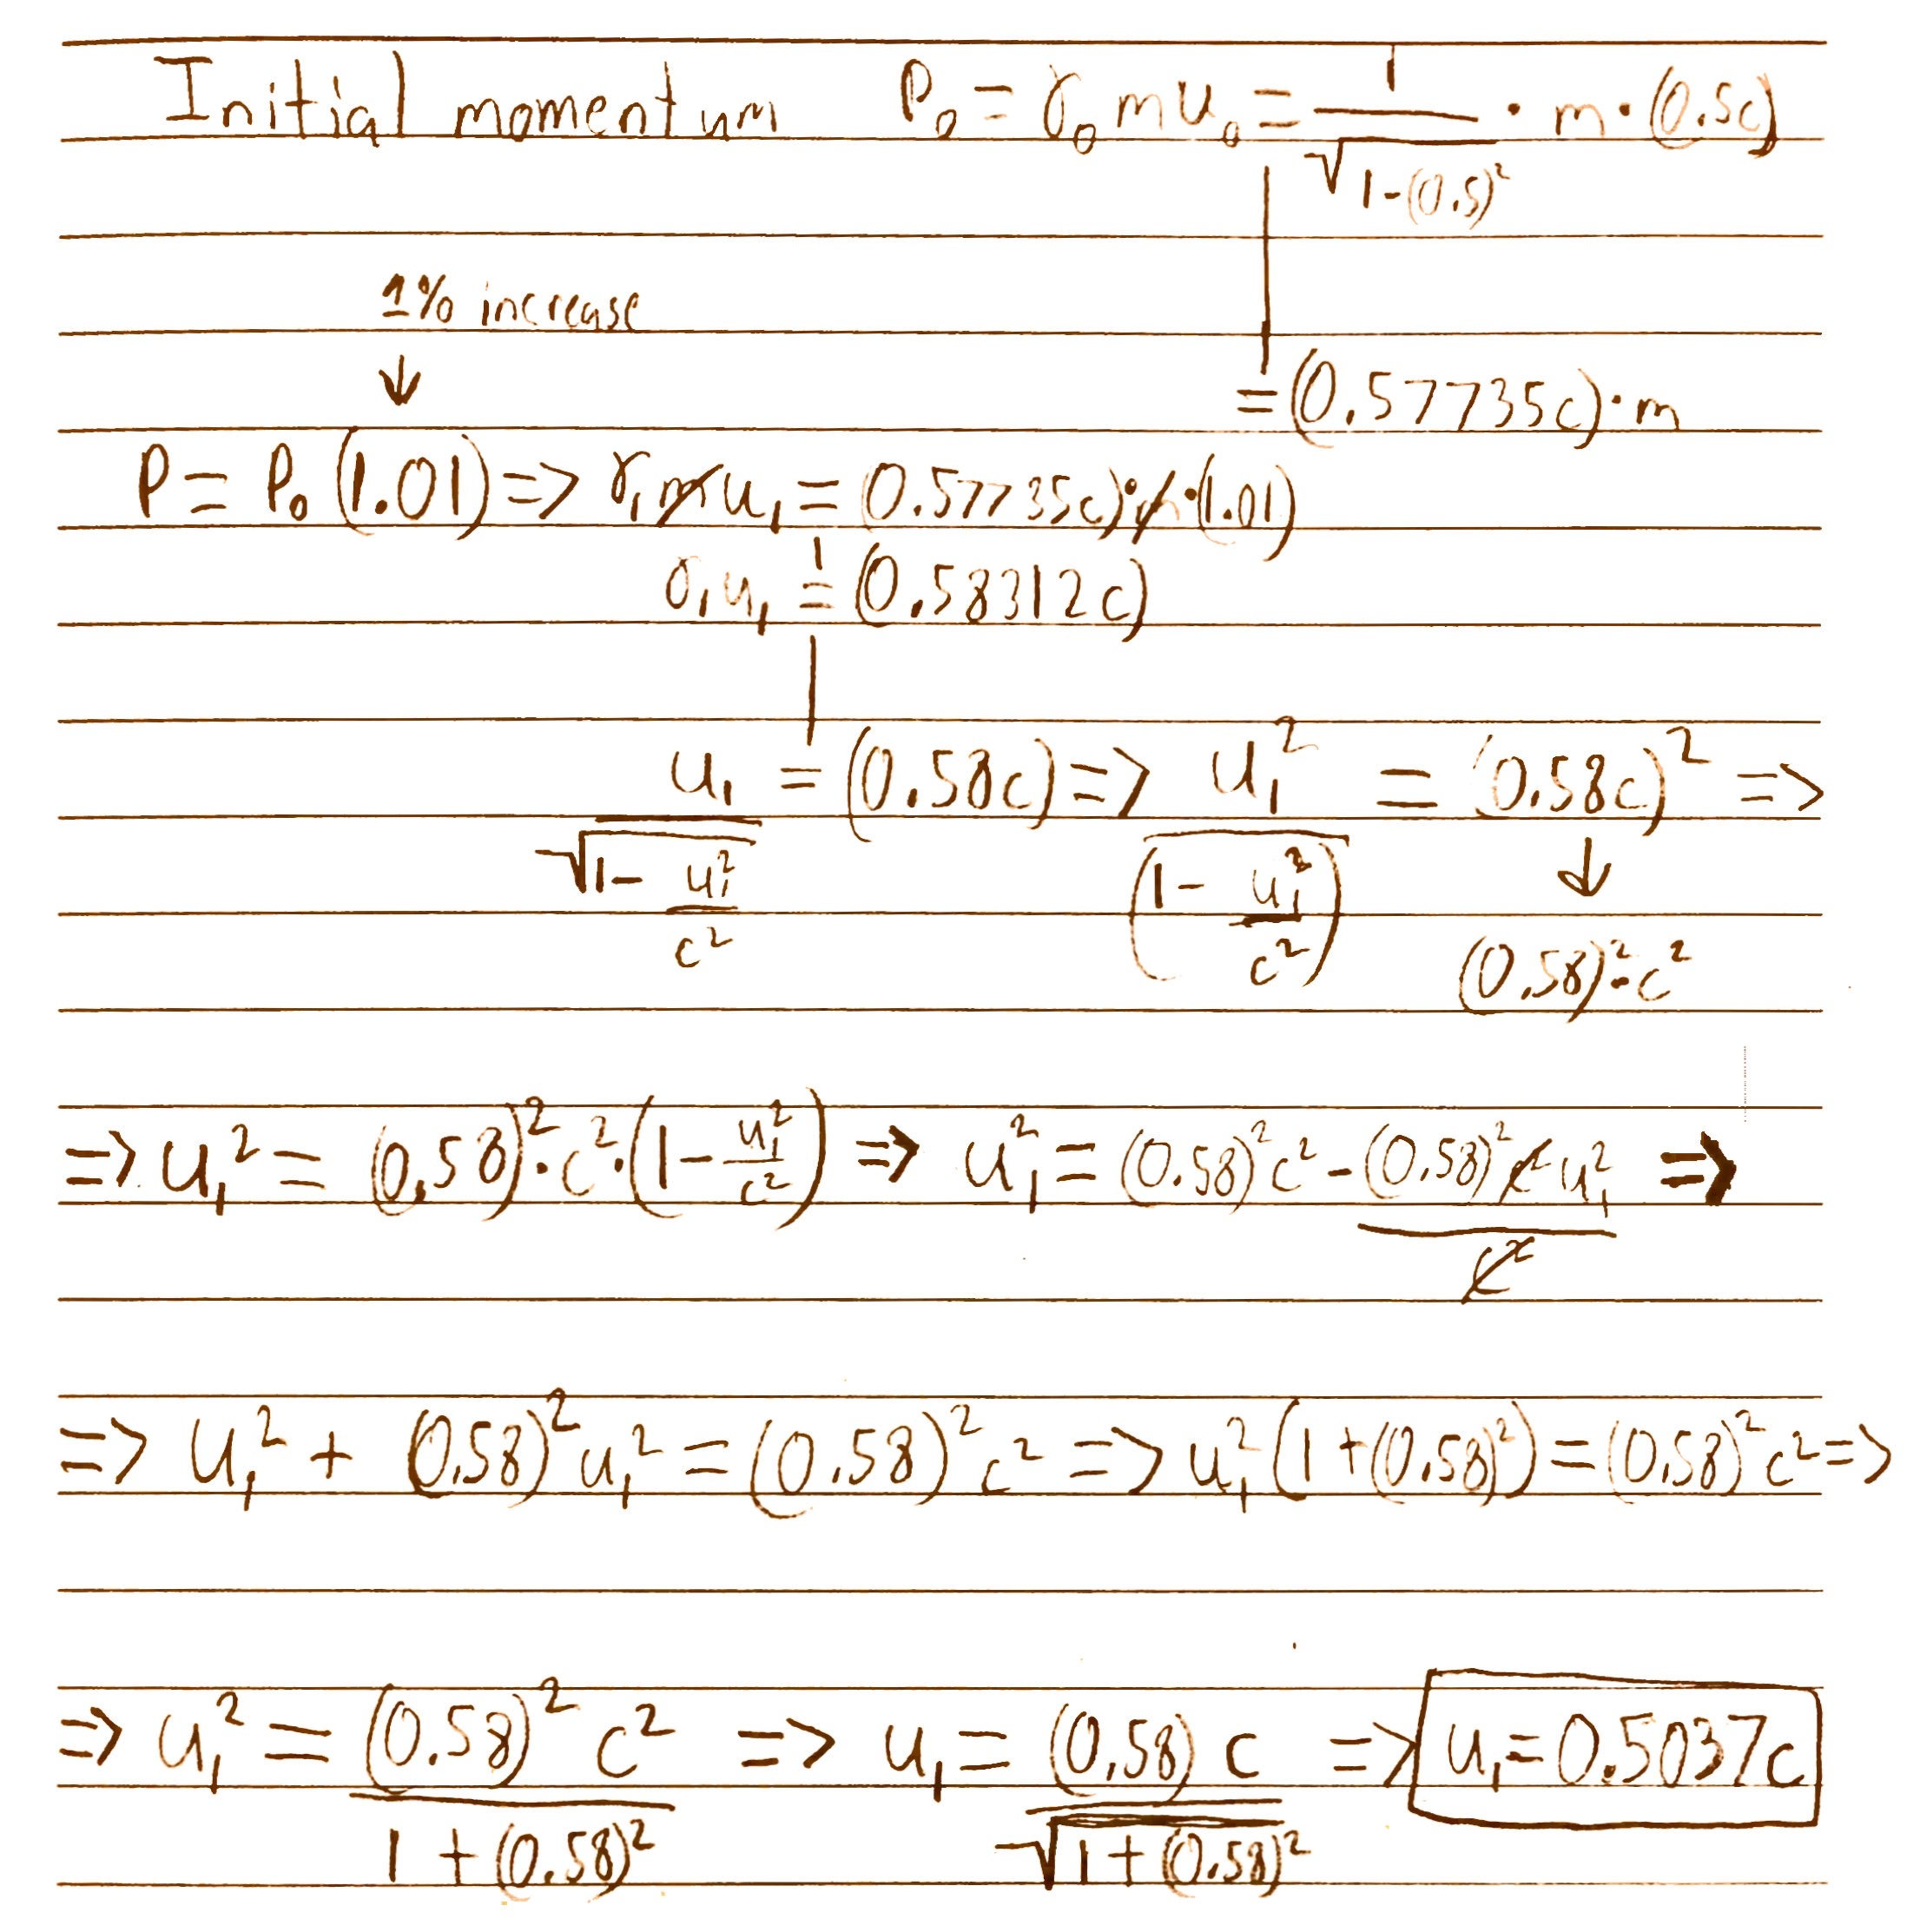 Initial momentum P₀ = γ₀ m u₀ = 1/√(1-(0.5)²) · m · (0.5c)
1% increase
↓
= (0.57735c)·m
P = P₀ (1.01) => γ₁ m u₁ = 0.57735c)·m·(1.01)
γ₁ u₁ = (0.58312c)
u₁/√(1 - u₁²/c²) = (0.58c) => u₁²/(1 - u₁²/c²) = (0.58c)² =>
↓
(0.58)²·c²
=> u₁² = (0.58)²·c²·(1 - u₁²/c²) => u₁² = (0.58)²c² - (0.58)²c²u₁²/c² =>
=> u₁² + (0.58)²u₁² = (0.58)²c² => u₁²(1+(0.58)²) = (0.58)²c² =>
=> u₁² = (0.58)² c²/1 + (0.58)² => u₁ = (0.58) c/√1 + (0.58)² => u₁ = 0.5037c